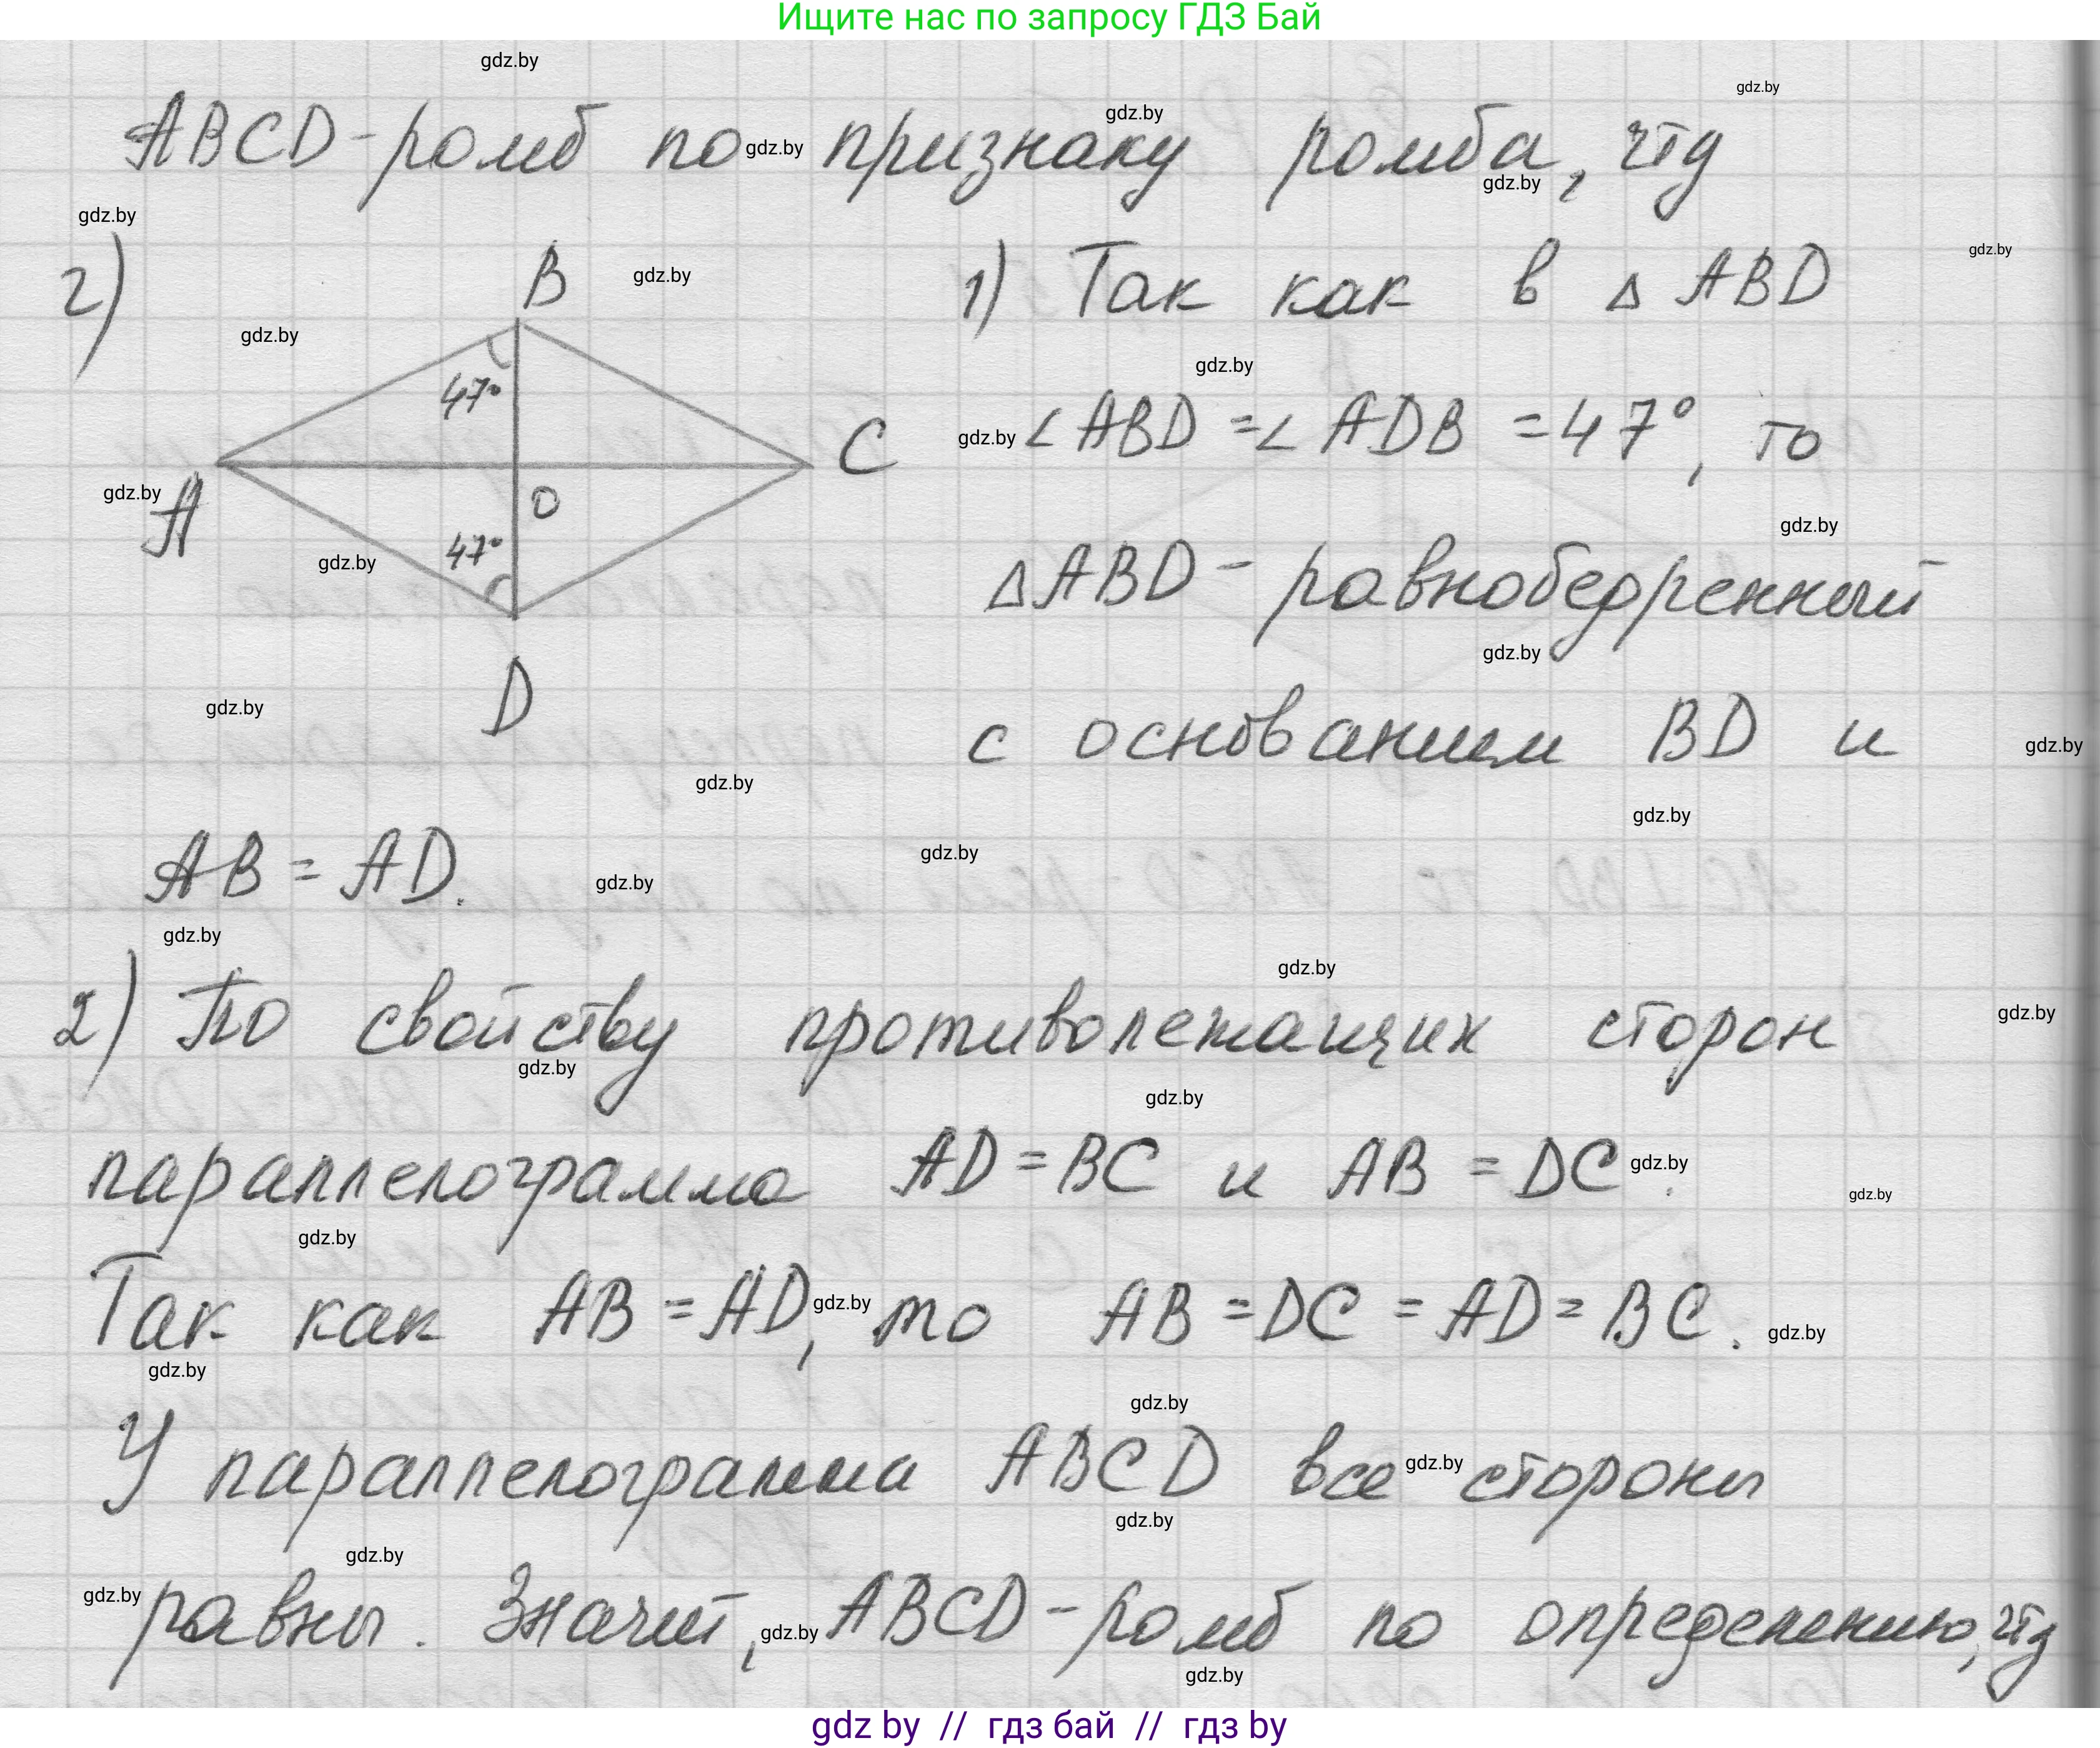 Ищите нас по запросу ГДЗ Бай
ABCD - ромб по признаку ромба, чтд
г)
B
47°
A
C
O
47°
D
1) Так как в △ ABD
∠ ABD = ∠ ADB = 47°, то
△ ABD - равнобедренный
с основанием BD и
AB = AD.
2) По свойству противолежащих сторон
параллелограмма AD = BC и AB = DC.
Так как AB = AD, то AB = DC = AD = BC.
У параллелограмма ABCD все стороны
равны. Значит, ABCD - ромб по определению, чтд
gdz by // гдз бай // гдз by